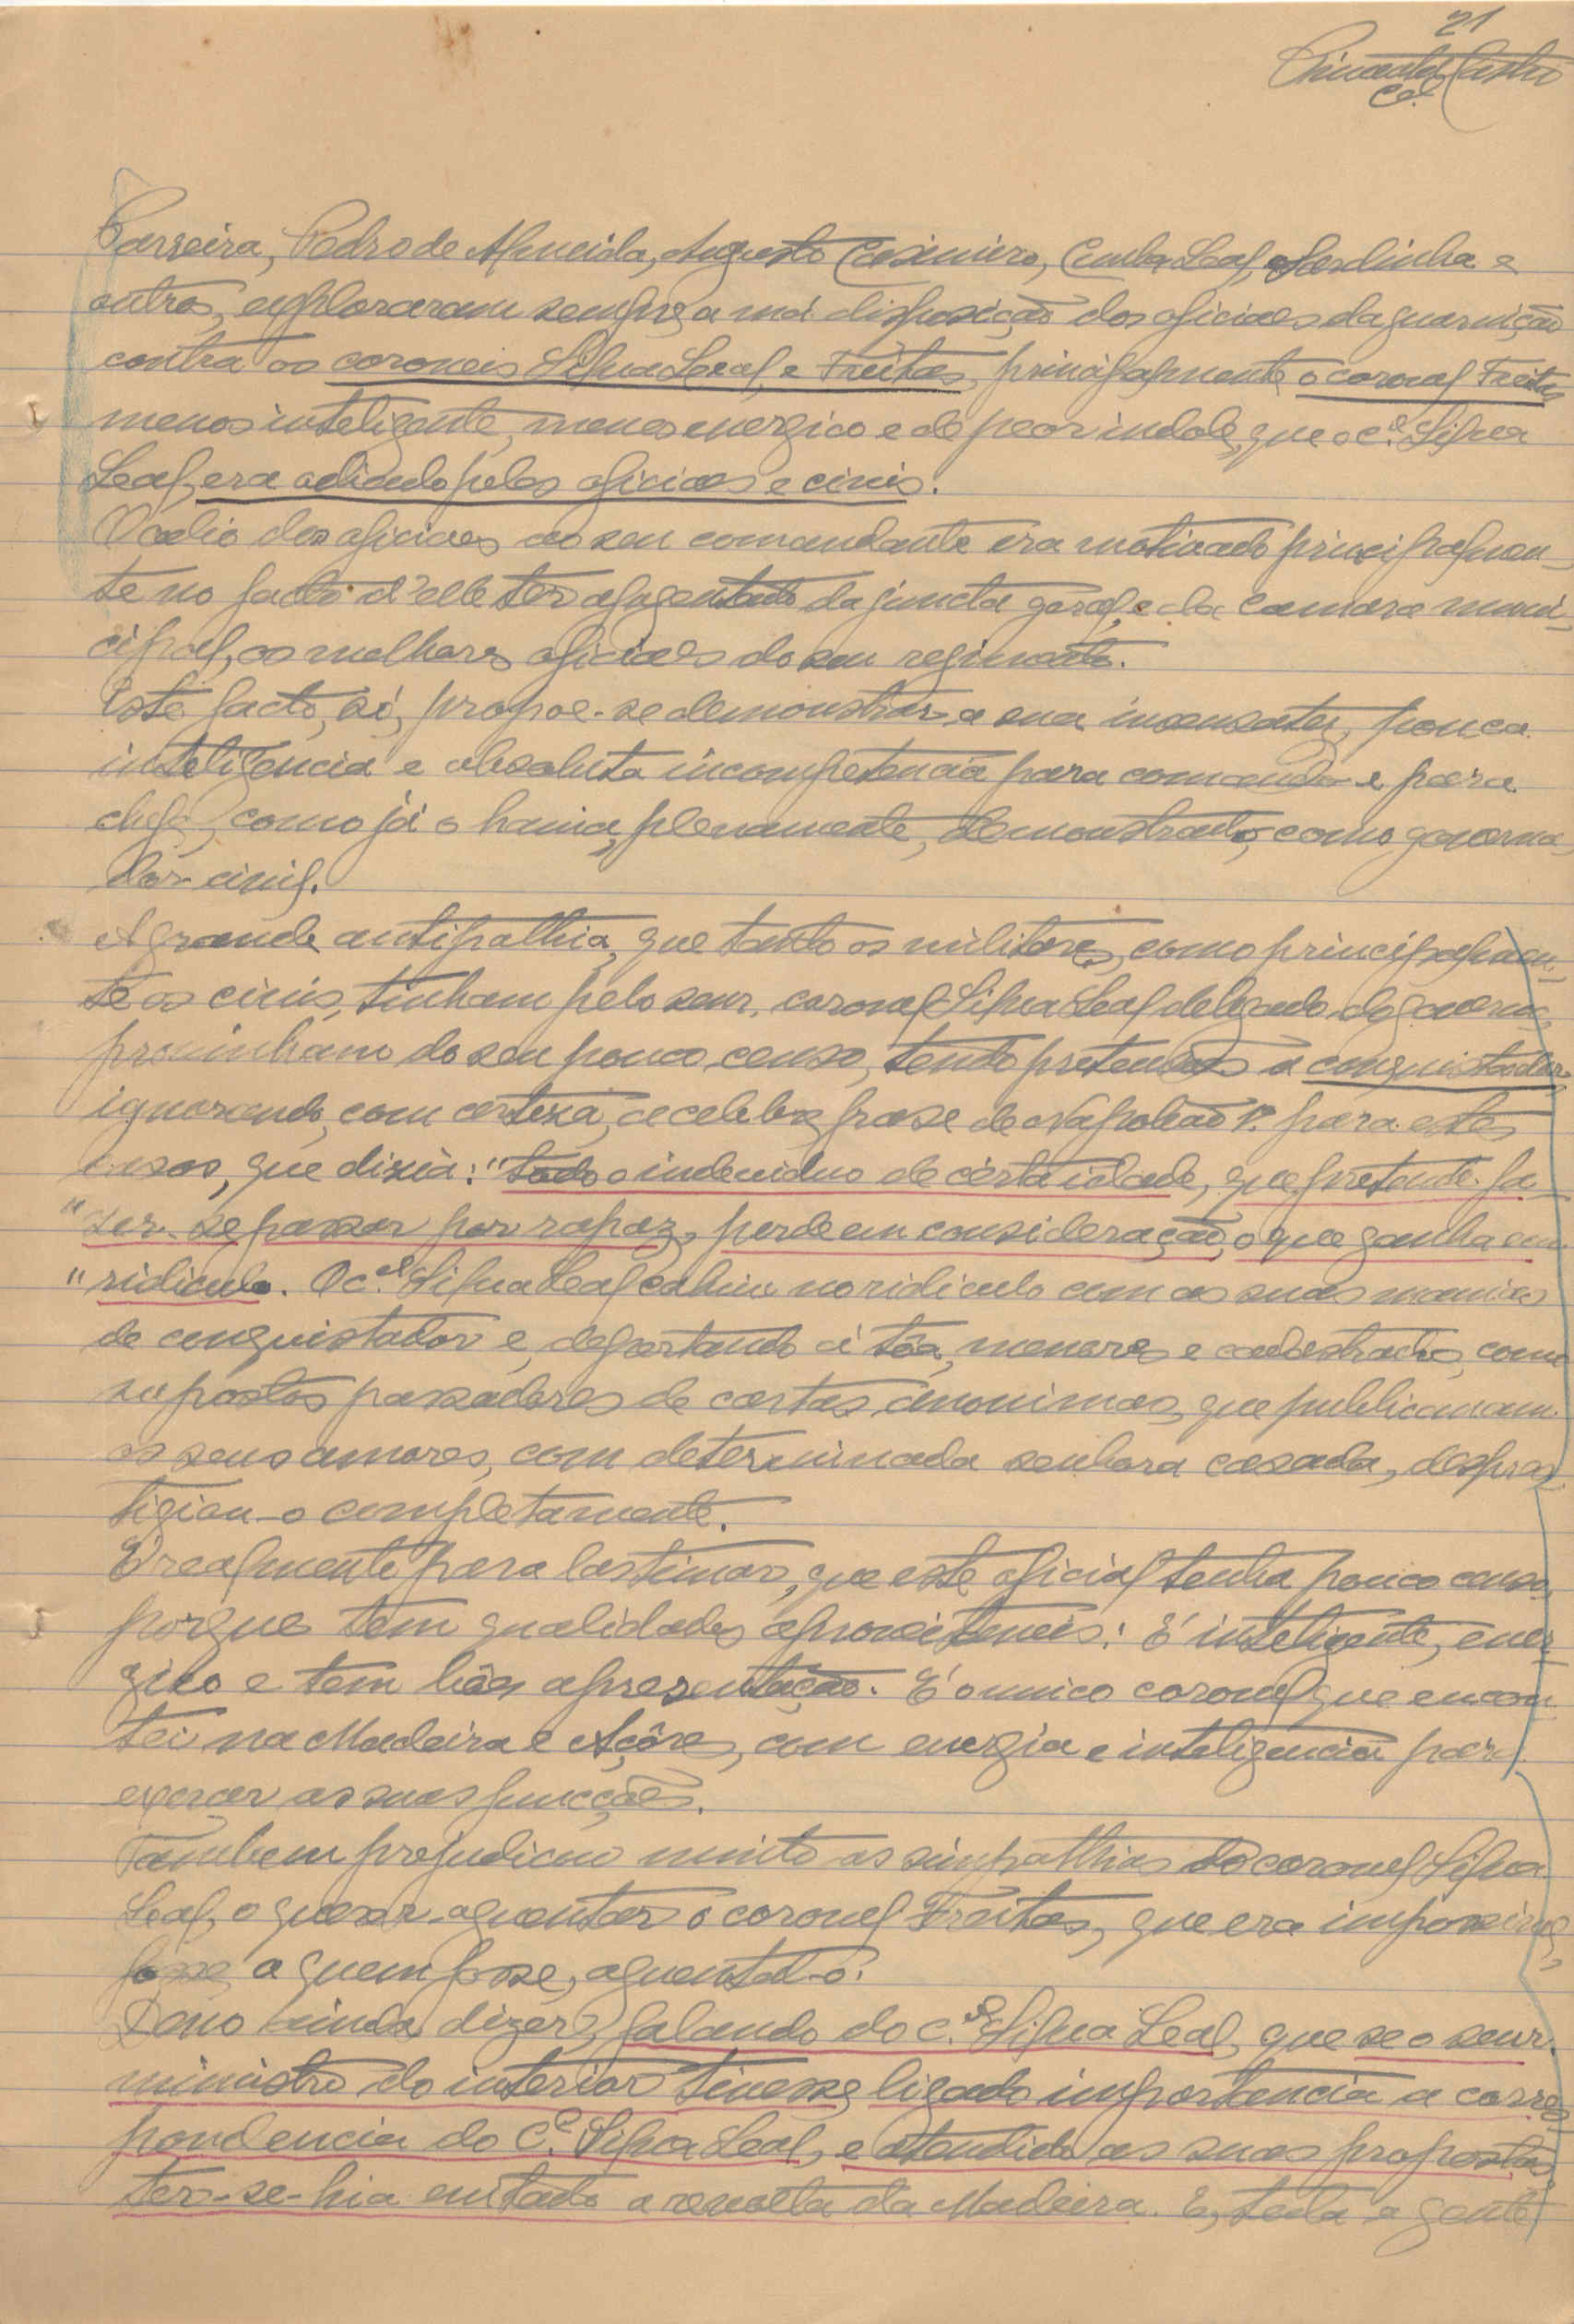 21
Castro
Cel
Carreira, Pedro de Almeida, Augusto Casimiro, Cunha Leal, Sardinha e
outros, exploraram sempre a má disposição dos oficiaes da guarnição
contra os coroneis Silva Leal, e Freitas, principalmente o coronel Freitas
menos inteligente, menos energico e de peor indole, que o c.el Silva
Leal, era odiado pelos oficiaes e civis.
O odio dos oficiaes ao seu comandante era motivado principalmen-
te no facto d'elle ter afugentado da juncta geral, e da camara muni-
cipal, os melhores oficiaes do seu regimento.
Este facto, só, propoe-se demonstrar a sua insensatez, pouca
inteligencia e absoluta incompetencia para comando e para
chefe, como já o havia, plenamente, demonstrado, como governa-
dor civil.
A grande antipathia, que tanto os militares, como principalmen-
te os civis, tinham pelo senr. coronel Silva Leal delegado do governo,
provinham do seu pouco censo, tendo pretensões a conquistador,
ignorando, com certeza, a celebre frase de Napoleão 1.º para estes
casos, que dizia: "todo o individuo de certa idade, que pretende fa-
"zer-se passar por rapaz, perde em consideração, o que ganha em
"ridiculo. O c.el Silva Leal cahiu no ridiculo com as suas manias
de conquistador e, deportando á tôa, menores e cadastrados, como
supostos passadores de cartas anonimas, que publicavam
os seus amores, com determinada senhora casada, despres-
tigiou-o completamente.
É realmente para lastimar, que este oficial tenha pouco censo,
porque tem qualidades aproveitaveis: É inteligente, ener-
gico e tem bôa apresentação. É o unico coronel que encon-
trei na Madeira e Açôres, com energia e inteligencia para
exercer as suas funcções.
Tambem prejudicou muito as simpathias do coronel Silva
Leal, o querer aguentar o coronel Freitas, que era impossivel,
fosse a quem fosse, aguental-o.
Devo ainda dizer, falando do c.el Silva Leal, que se o senr.
ministro do interior tivesse ligado importancia a corres-
pondencia do C.el Silva Leal, e atendido as suas propostas,
ter-se-hia evitado a revolta da Madeira. E, toda a gente